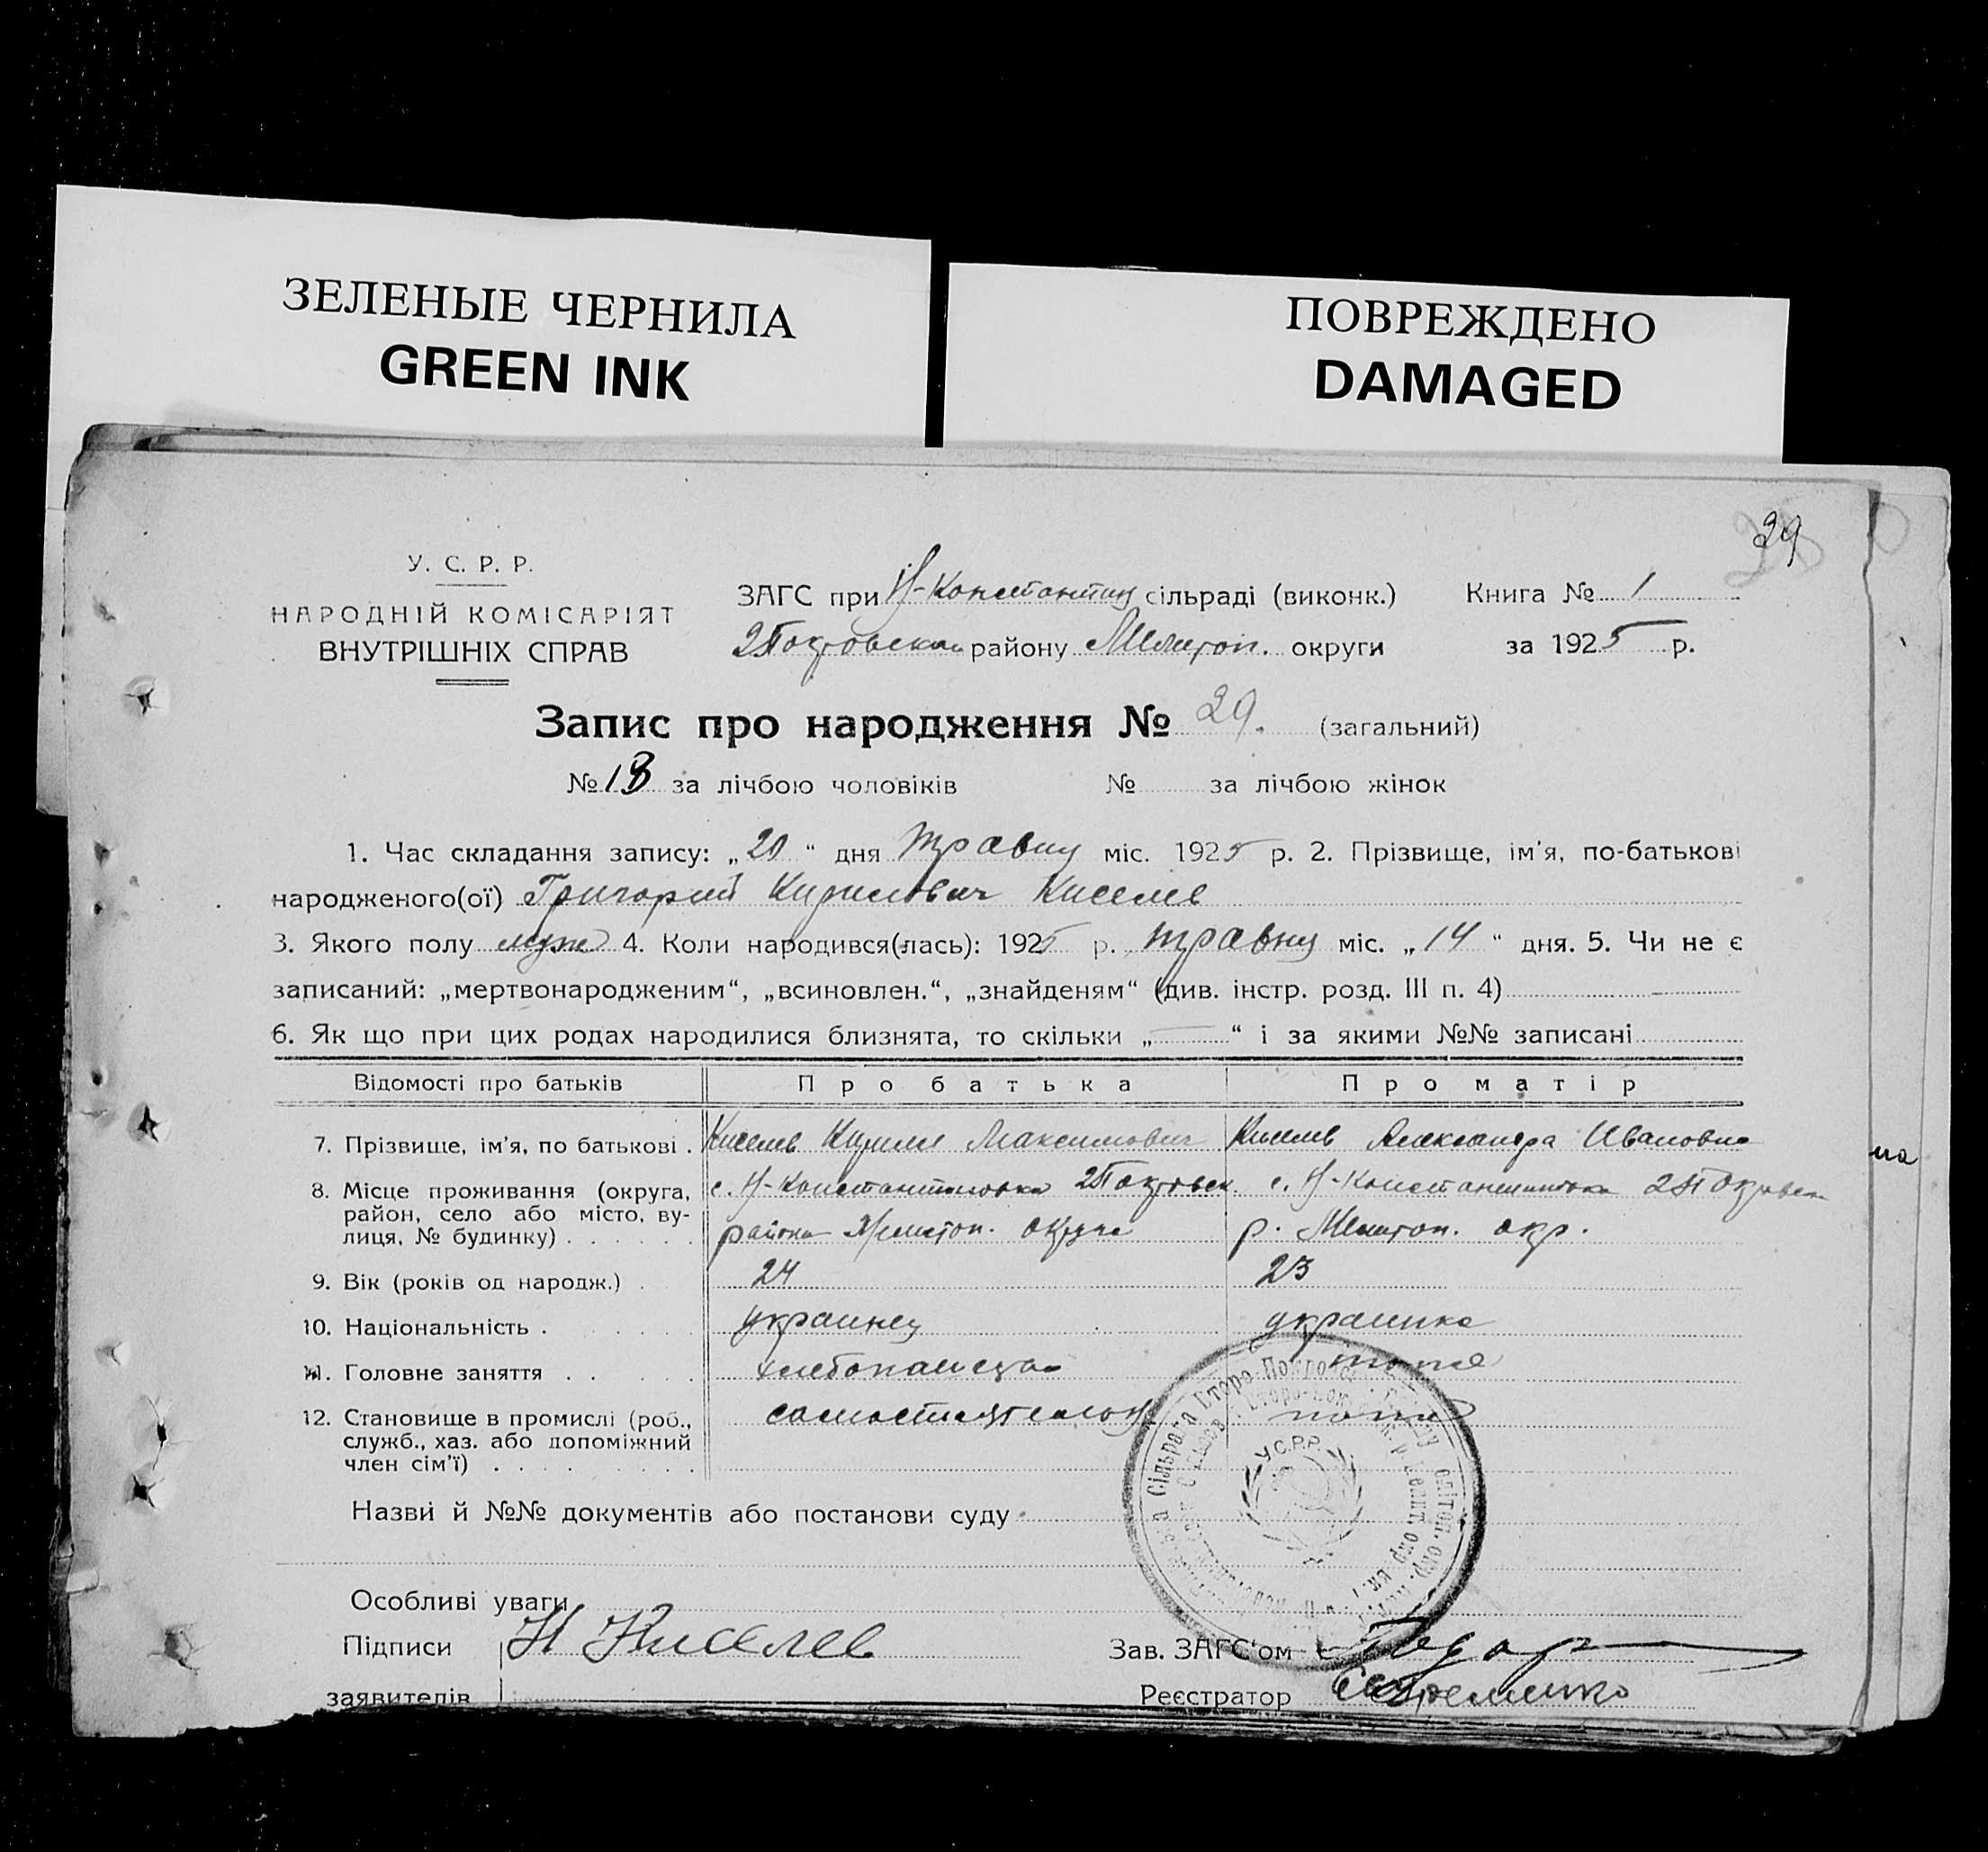 ЗЕЛЕНЫЕ ЧЕРНИЛА
GREEN INK
ПОВРЕЖДЕНО
DAMAGED
39
У. С. Р. Р.
НАРОДНІЙ КОМІСАРІЯТ
ВНУТРІШНІХ СПРАВ
ЗАГС при Н-Константин сільраді (виконк.) Книга № 1
2Покровском району Мелитоп. округи за 1925 р.
Запис про народження № 29. (загальний)
№ 18 за лічбою чоловіків № за лічбою жінок
1. Час складання запису: „20“ дня травня міс. 1925 р. 2. Прізвище, ім’я, по-батькові
народженого(ої) Григорий Кирилович Киселев
3. Якого полу муж 4. Коли народився(лась): 1925 р. травня міс. „14“ дня. 5. Чи не є
записаний: „мертвонародженим“, „всиновлен.“, „знайденям“ (див. інстр. розд. III п. 4)
6. Як що при цих родах народилися близнята, то скільки „—“ і за якими №№ записані
Відомості про батьків Про батька Про матір
7. Прізвище, ім’я, по батькові . Киселев Кирилл Максимович Киселев Александра Ивановна
на
8. Місце проживання (округа, с. Н-Константиновка 2Покровск. с. Н-Константиновка 2Покровск
район, село або місто, ву-
лиця, № будинку) . . . . . . района Мелитоп. округа р. Мелитоп. окр.
9. Вік (років од народж.) . 24 23
10. Національність . украинец украинка
11. Головне заняття . . хлебопашец тоже
12. Становище в промислі (роб.,
служб., хаз. або допоміжний
член сім’ї) . . . . . .
У.С.Р.Р.
Назви й №№ документів або постанови суду
Особливі уваги
Підписи К Киселев Зав. ЗАГС’ом
заявителів Реєстратор Ефременко